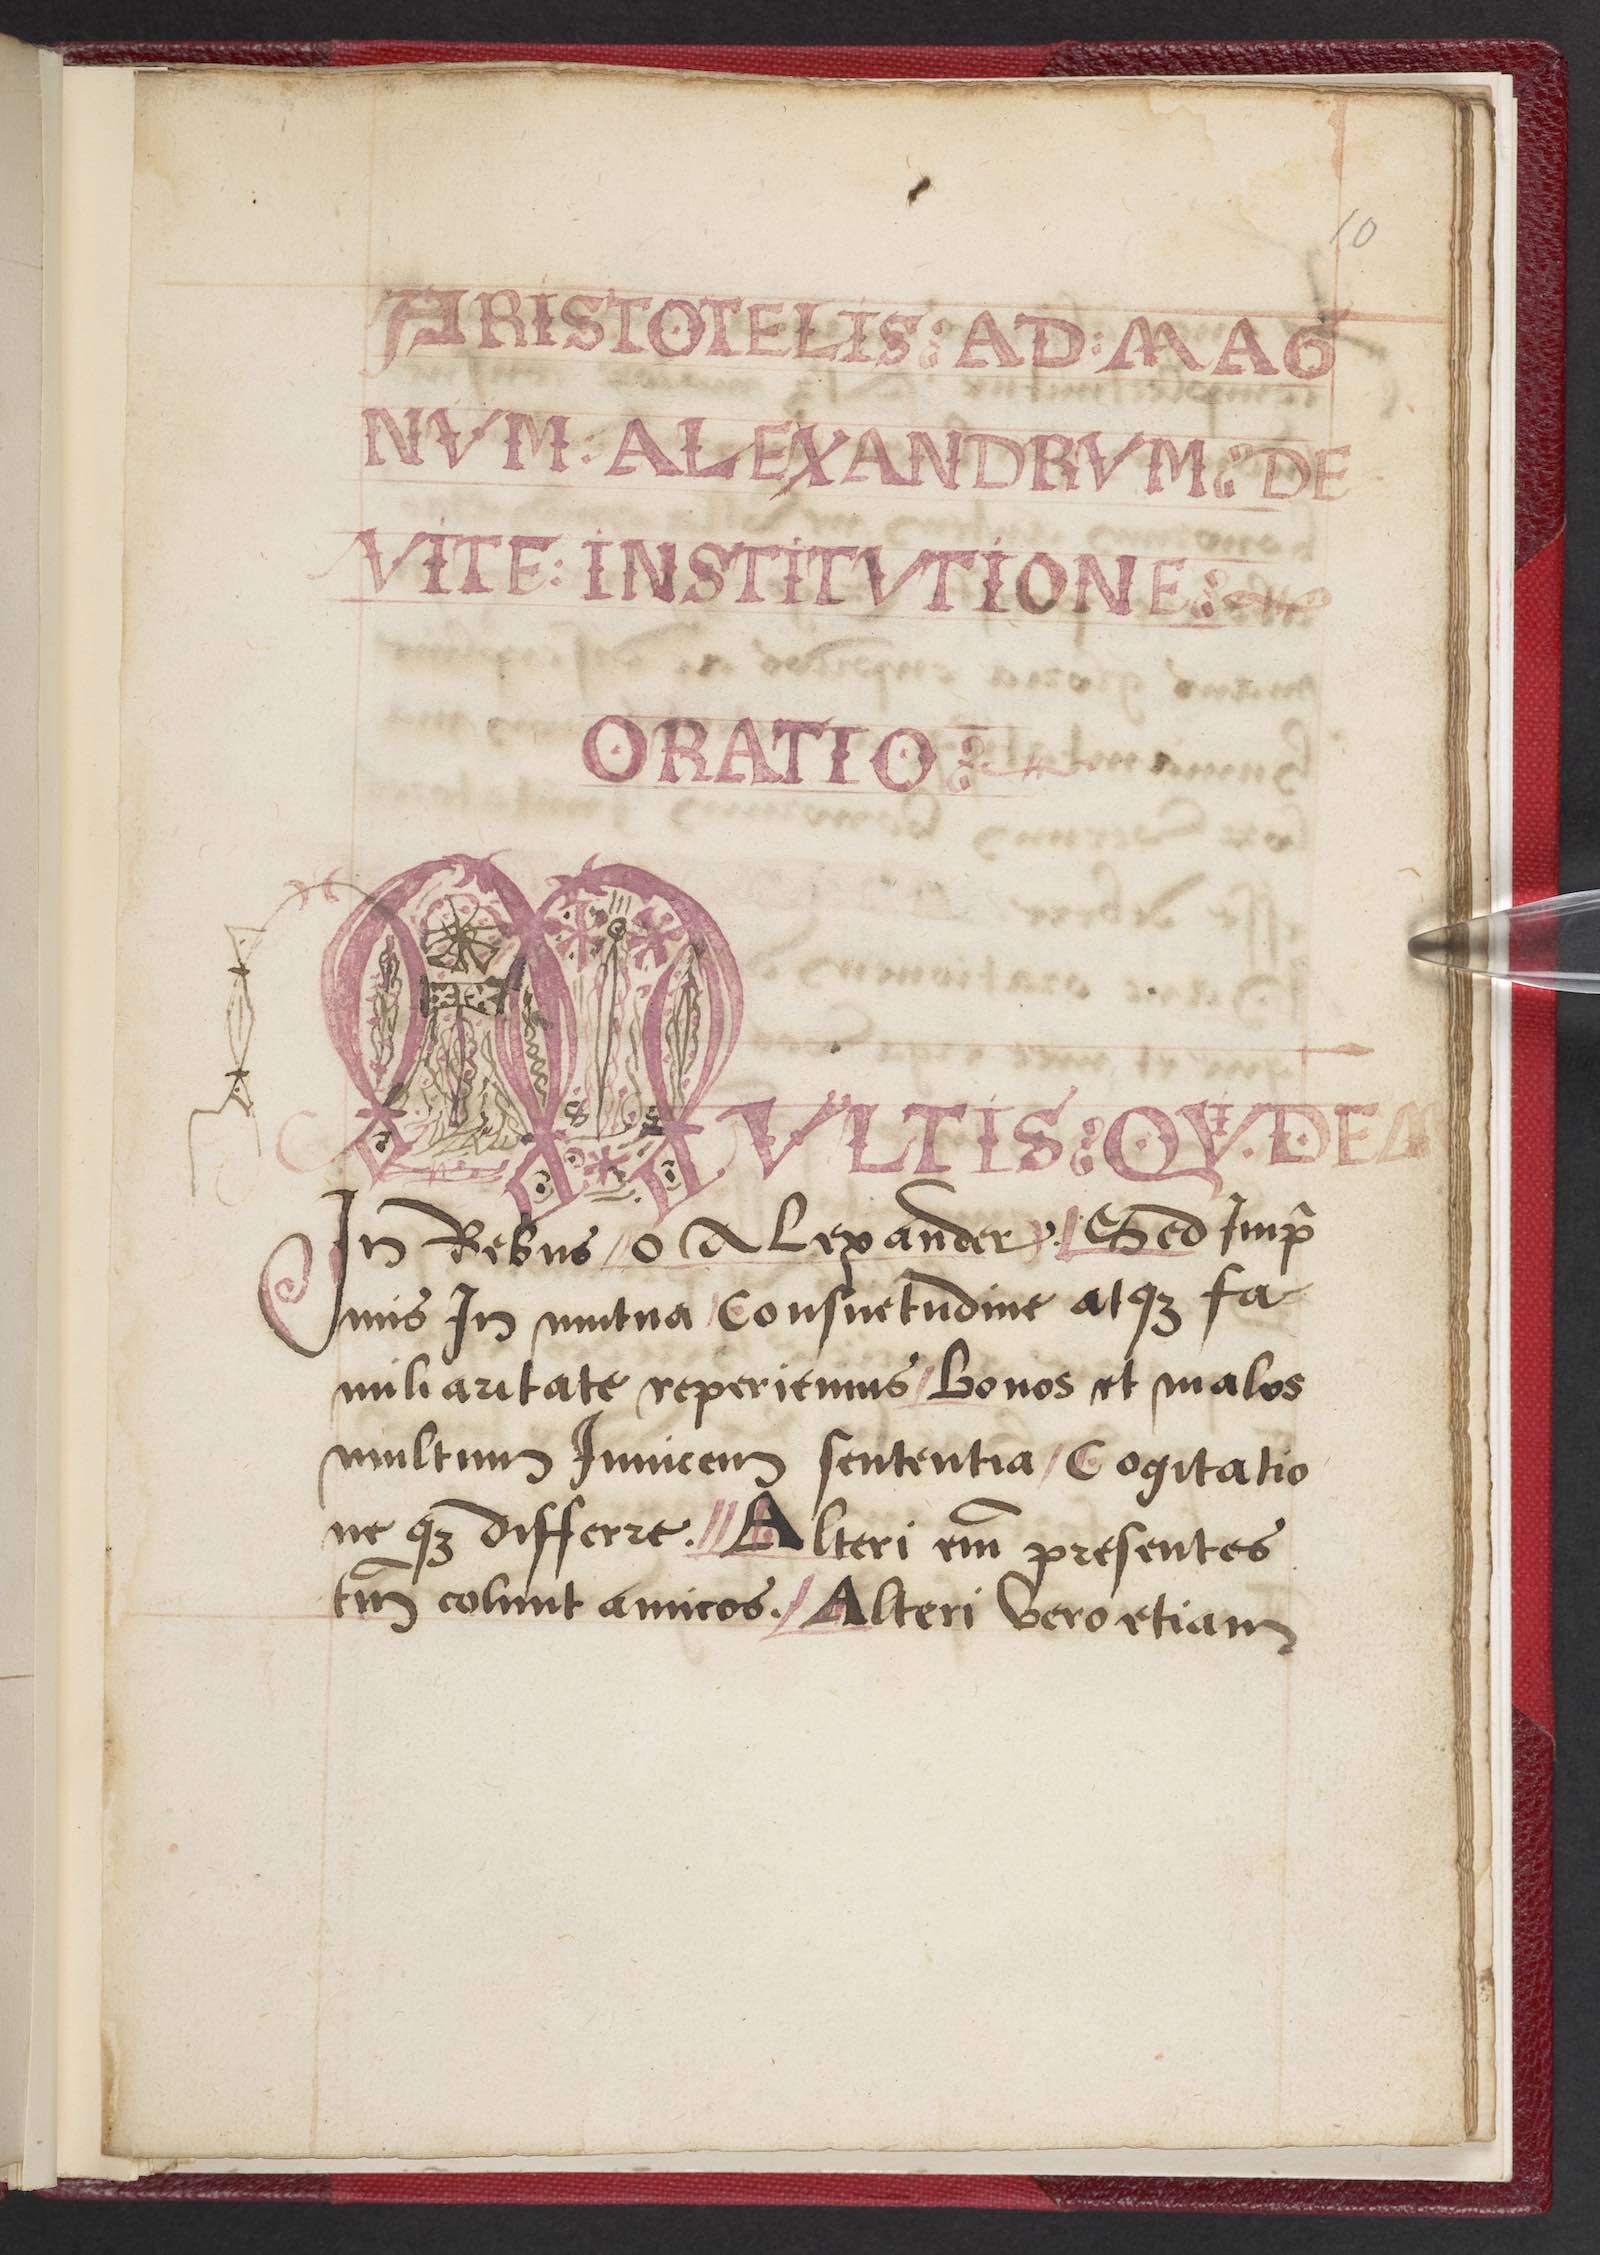 10
ARISTOTELIS: AD: MAG
NVM: ALEXANDRVM: DE
VITE: INSTITVTIONE:
ORATIO:
MVLTIS: QVIDEM
In Rebus / o Alexander. / Sed Imp̃
mis In mutua / Consuetudine atqꝫ fa
miliaritate reperiemus / bonos et malos
multum Inuicem sententia / Cogitatio
ne qꝫ differre. // Alteri em̃ presentes
tm̃ colunt amicos. / Alteri vero etiam